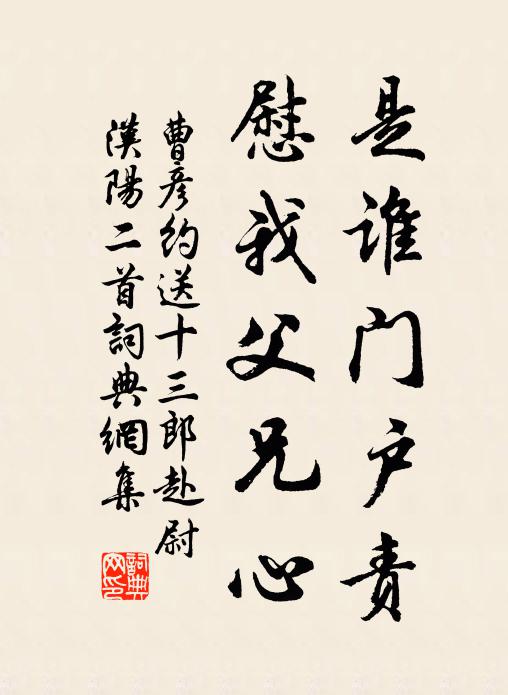 是谁门户责
慰我父兄心
曹彦约送十三郎赴尉
漢陽二首詞典網集
詞典
网印